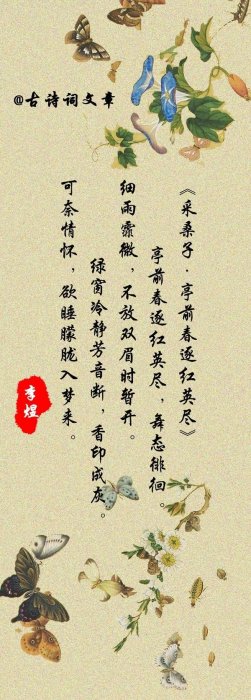 《采桑子·亭前春逐红英尽》
亭前春逐红英尽，舞态徘徊。
细雨霏微，不放双眉时暂开。
绿窗冷静芳音断，香印成灰。
可奈情怀，欲睡朦胧入梦来。
李煜
@古诗词文章